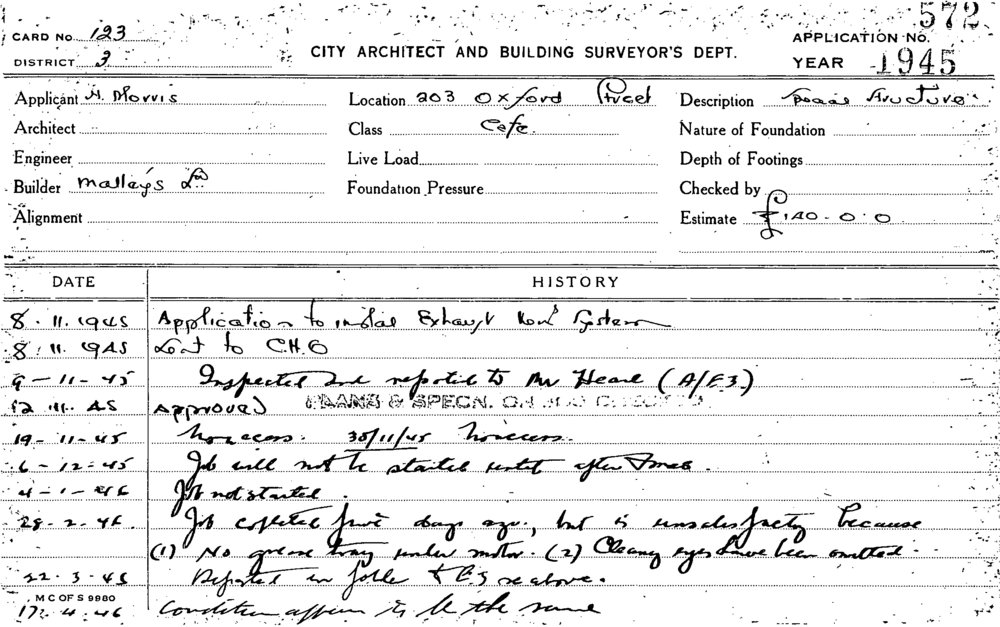 572
CARD No. 123 APPLICATION No.
DISTRICT 3 CITY ARCHITECT AND BUILDING SURVEYOR'S DEPT. YEAR 1945
Applicant H. Morris Location 203 Oxford Street Description Structure
Architect Class Cafe. Nature of Foundation
Engineer Live Load Depth of Footings
Builder Malleys Ld Foundation Pressure Checked by
Alignment Estimate £140-0-0
DATE HISTORY
8.11.1945 Application to instal Exhaust Vent System
8.11.1945 Sent to C.H.O
9-11-45 Inspected and reported to Mr Heane (A/E3)
12.11.45 Approved PLANS & SPECN. ON
19-11-45 No access. 30/11/45 No access.
6-12-45 Job will not be started until after Xmas.
4-1-46 Job not started.
28-2-46. Job completed five days ago, but is unsatisfactory because
(1) No grease tray under motor. (2) Cleaning eyes have been omitted.
22.3.46 Reported in folder to E3 re above.
M C OF S 9980
17.4.46 Condition appears to be the same